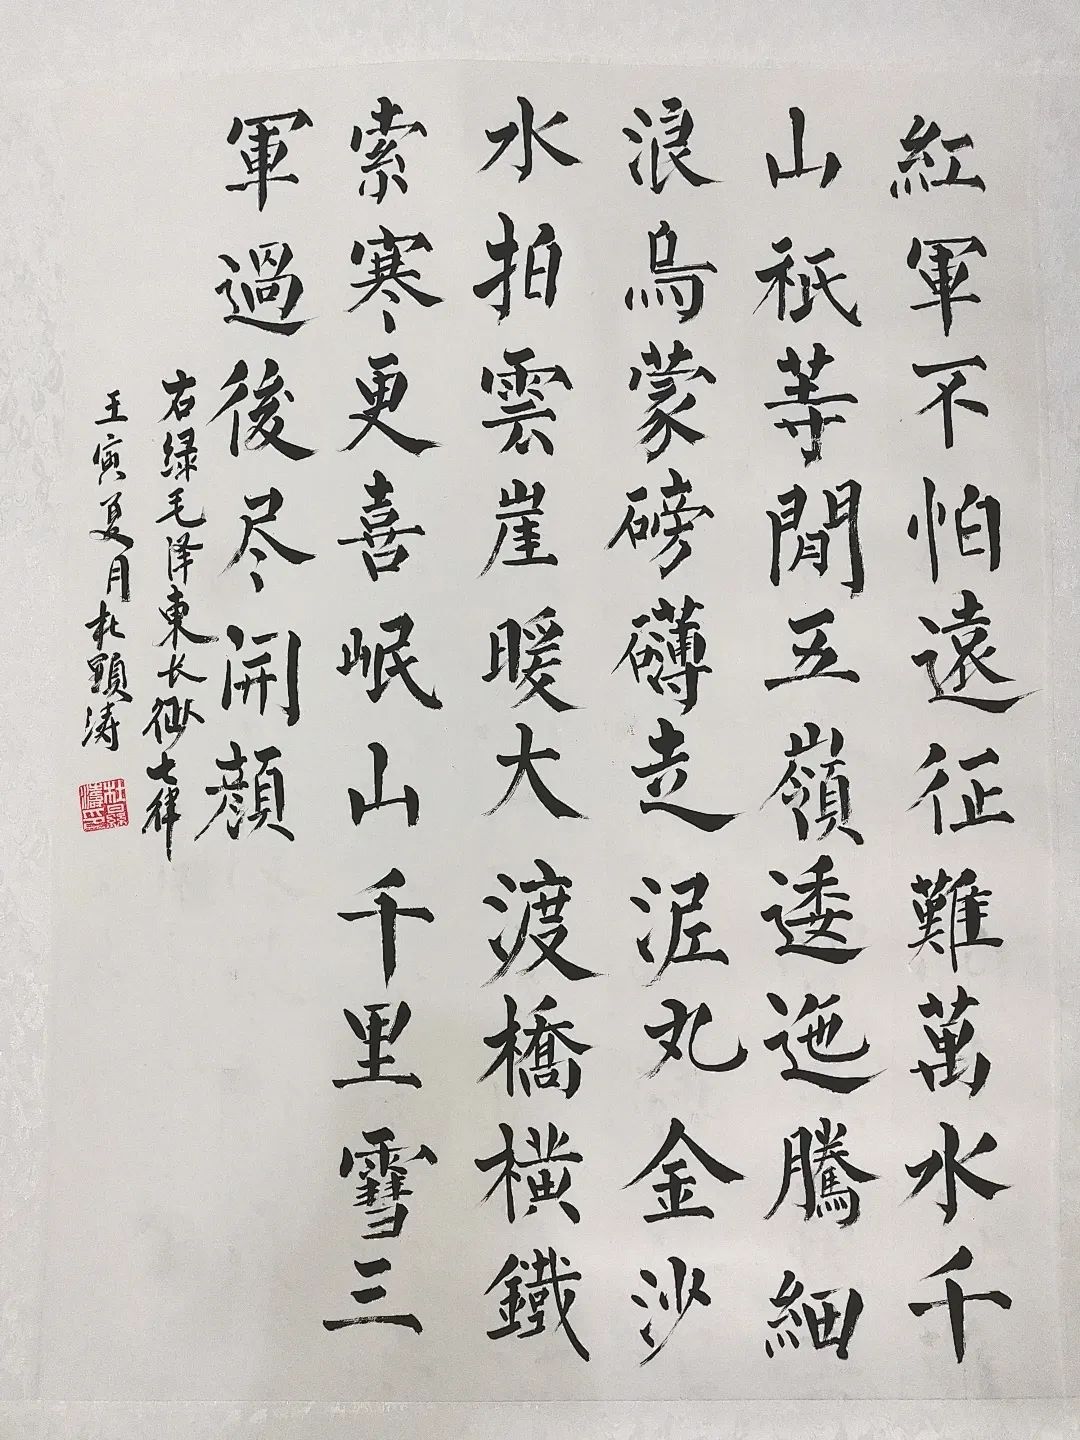 紅軍不怕遠征難萬水千
山祇等閒五嶺逶迤騰細
浪烏蒙磅礴走泥丸金沙
水拍雲崖暖大渡橋橫鐵
索寒更喜岷山千里雪三
軍過後尽開顔
右绿毛泽東长征七律
壬寅夏月杜顕涛